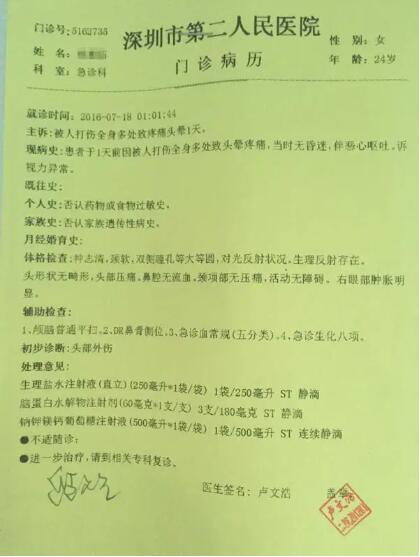 深圳市第二人民医院
门诊病历
门诊号：5162735
姓名：
科室：急诊科
性别：女
年龄：24岁
就诊时间：2016-07-18 01:01:44
主诉：被人打伤全身多处致疼痛头晕1天。
现病史：患者于1天前因被人打伤全身多处致头晕疼痛，当时无昏迷，伴恶心呕吐。诉
视力异常。
既往史：
个人史：否认药物或食物过敏史。
家族史：否认家族遗传性病史。
月经婚育史：
体格检查：神志清，颈软，双侧瞳孔等大等圆，对光反射状况，生理反射存在。
头形状无畸形，头部压痛。鼻腔无流血，颈项部无压痛，活动无障碍。 右眼部肿胀明
显。
辅助检查：
1、颅脑普通平扫。2、DR鼻骨侧位。3、急诊血常规（五分类）。4、急诊生化八项。
初步诊断：头部外伤
处理意见：
生理盐水注射液（直立）（250毫升*1袋/袋） 1袋/250毫升 ST 静滴
脑蛋白水解物注射剂（60毫克*1支/支） 3支/180毫克 ST 静滴
钠钾镁钙葡萄糖注射液（500毫升*1袋/袋） 1袋/500毫升 ST 连续静滴
●不适随诊；
●进一步治疗，请到相关专科复诊。
医生签名：卢文浩 盖章